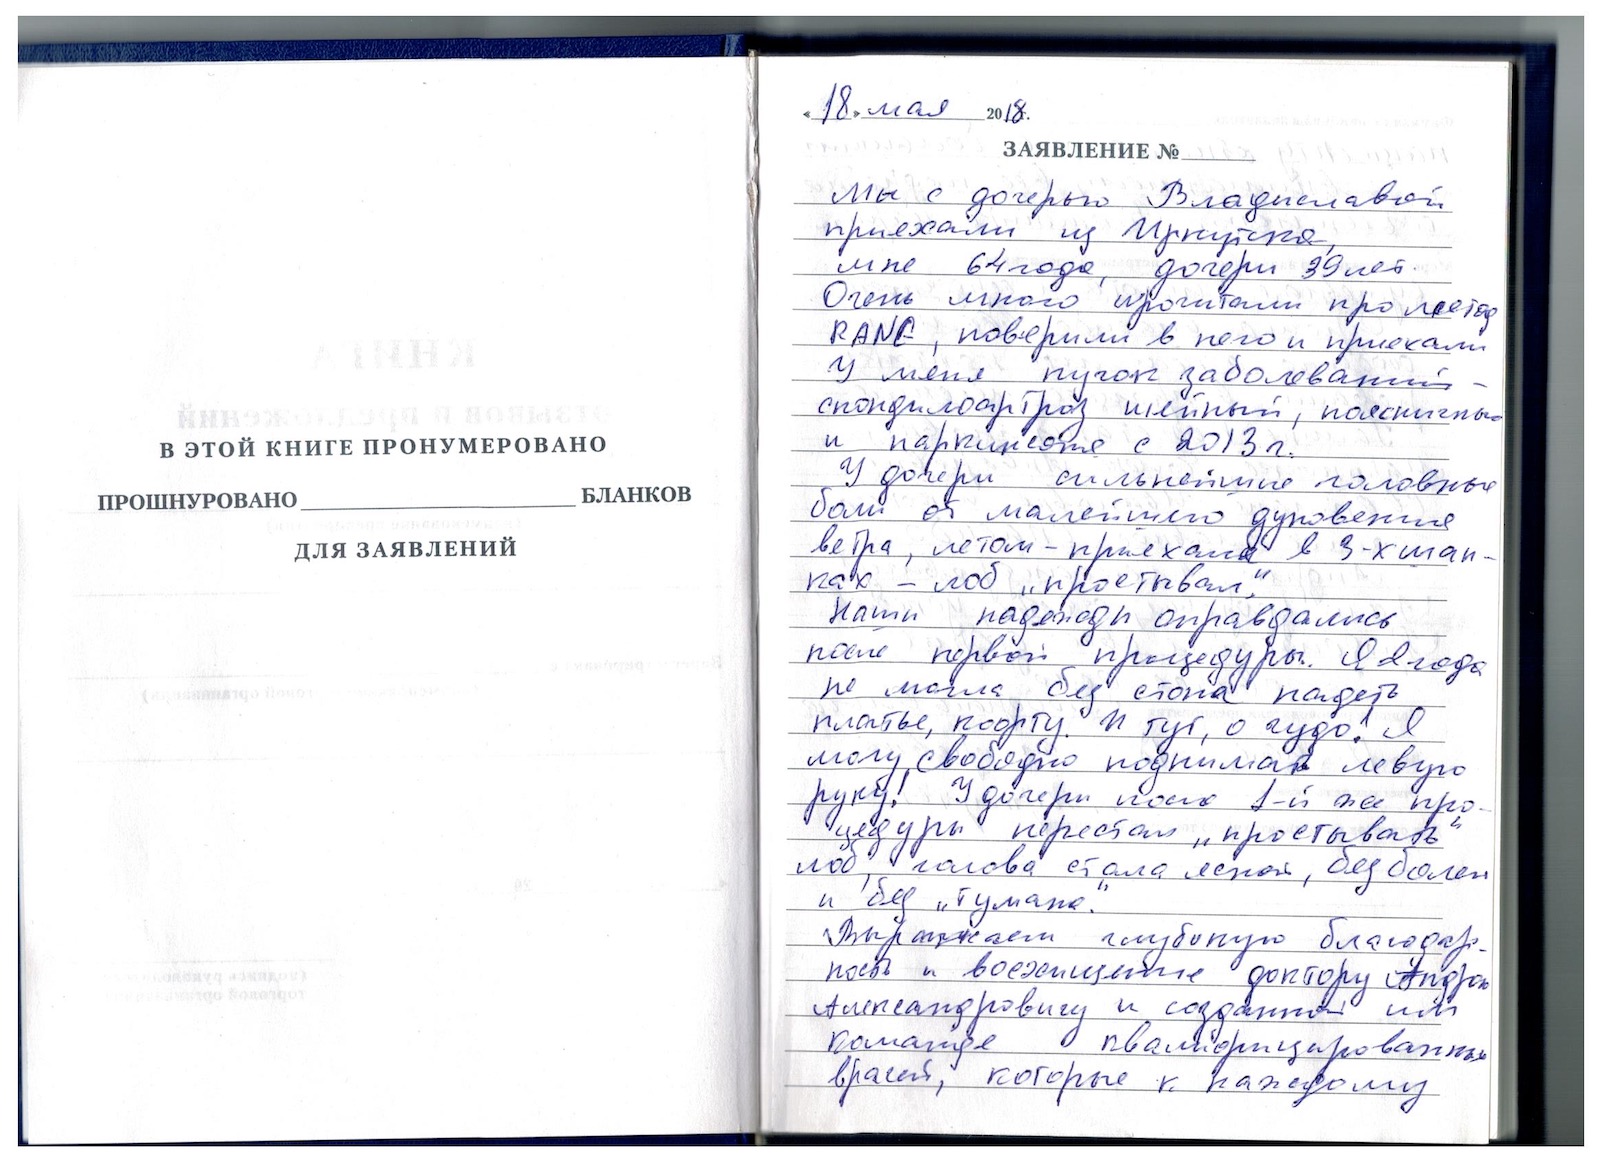 В ЭТОЙ КНИГЕ ПРОНУМЕРОВАНО
ПРОШНУРОВАНО БЛАНКОВ
ДЛЯ ЗАЯВЛЕНИЙ
«18» мая 2018г.
ЗАЯВЛЕНИЕ №
Мы с дочерью Владиславой
приехали из Иркутска,
мне 64 года, дочери 39 лет.
Очень много прочитали про метод
RANC, поверили в него и приехали
У меня пучок заболеваний -
спондилоартроз шейный, поясничный
и паркинсона с 2013 г.
У дочери сильнейшие головные
боли от малейшего дуновения
ветра, летом - приехала в 3-х шап-
ках - лоб „простывал".
Наши надежды оправдались
после первой процедуры. Я 2 года
не могла без стона надеть
платье, кофту. И тут, о чудо! Я
могу свободно поднимать левую
руку! У дочери после 1-й же про-
цедуры перестал „простывать"
лоб, голова стала ясной, без болей
и без „тумана".
Выражаем глубокую благодар-
ность и восхищение доктору Андрею
Александровичу и созданной им
команде квалифицированных
врачей, которые к каждому